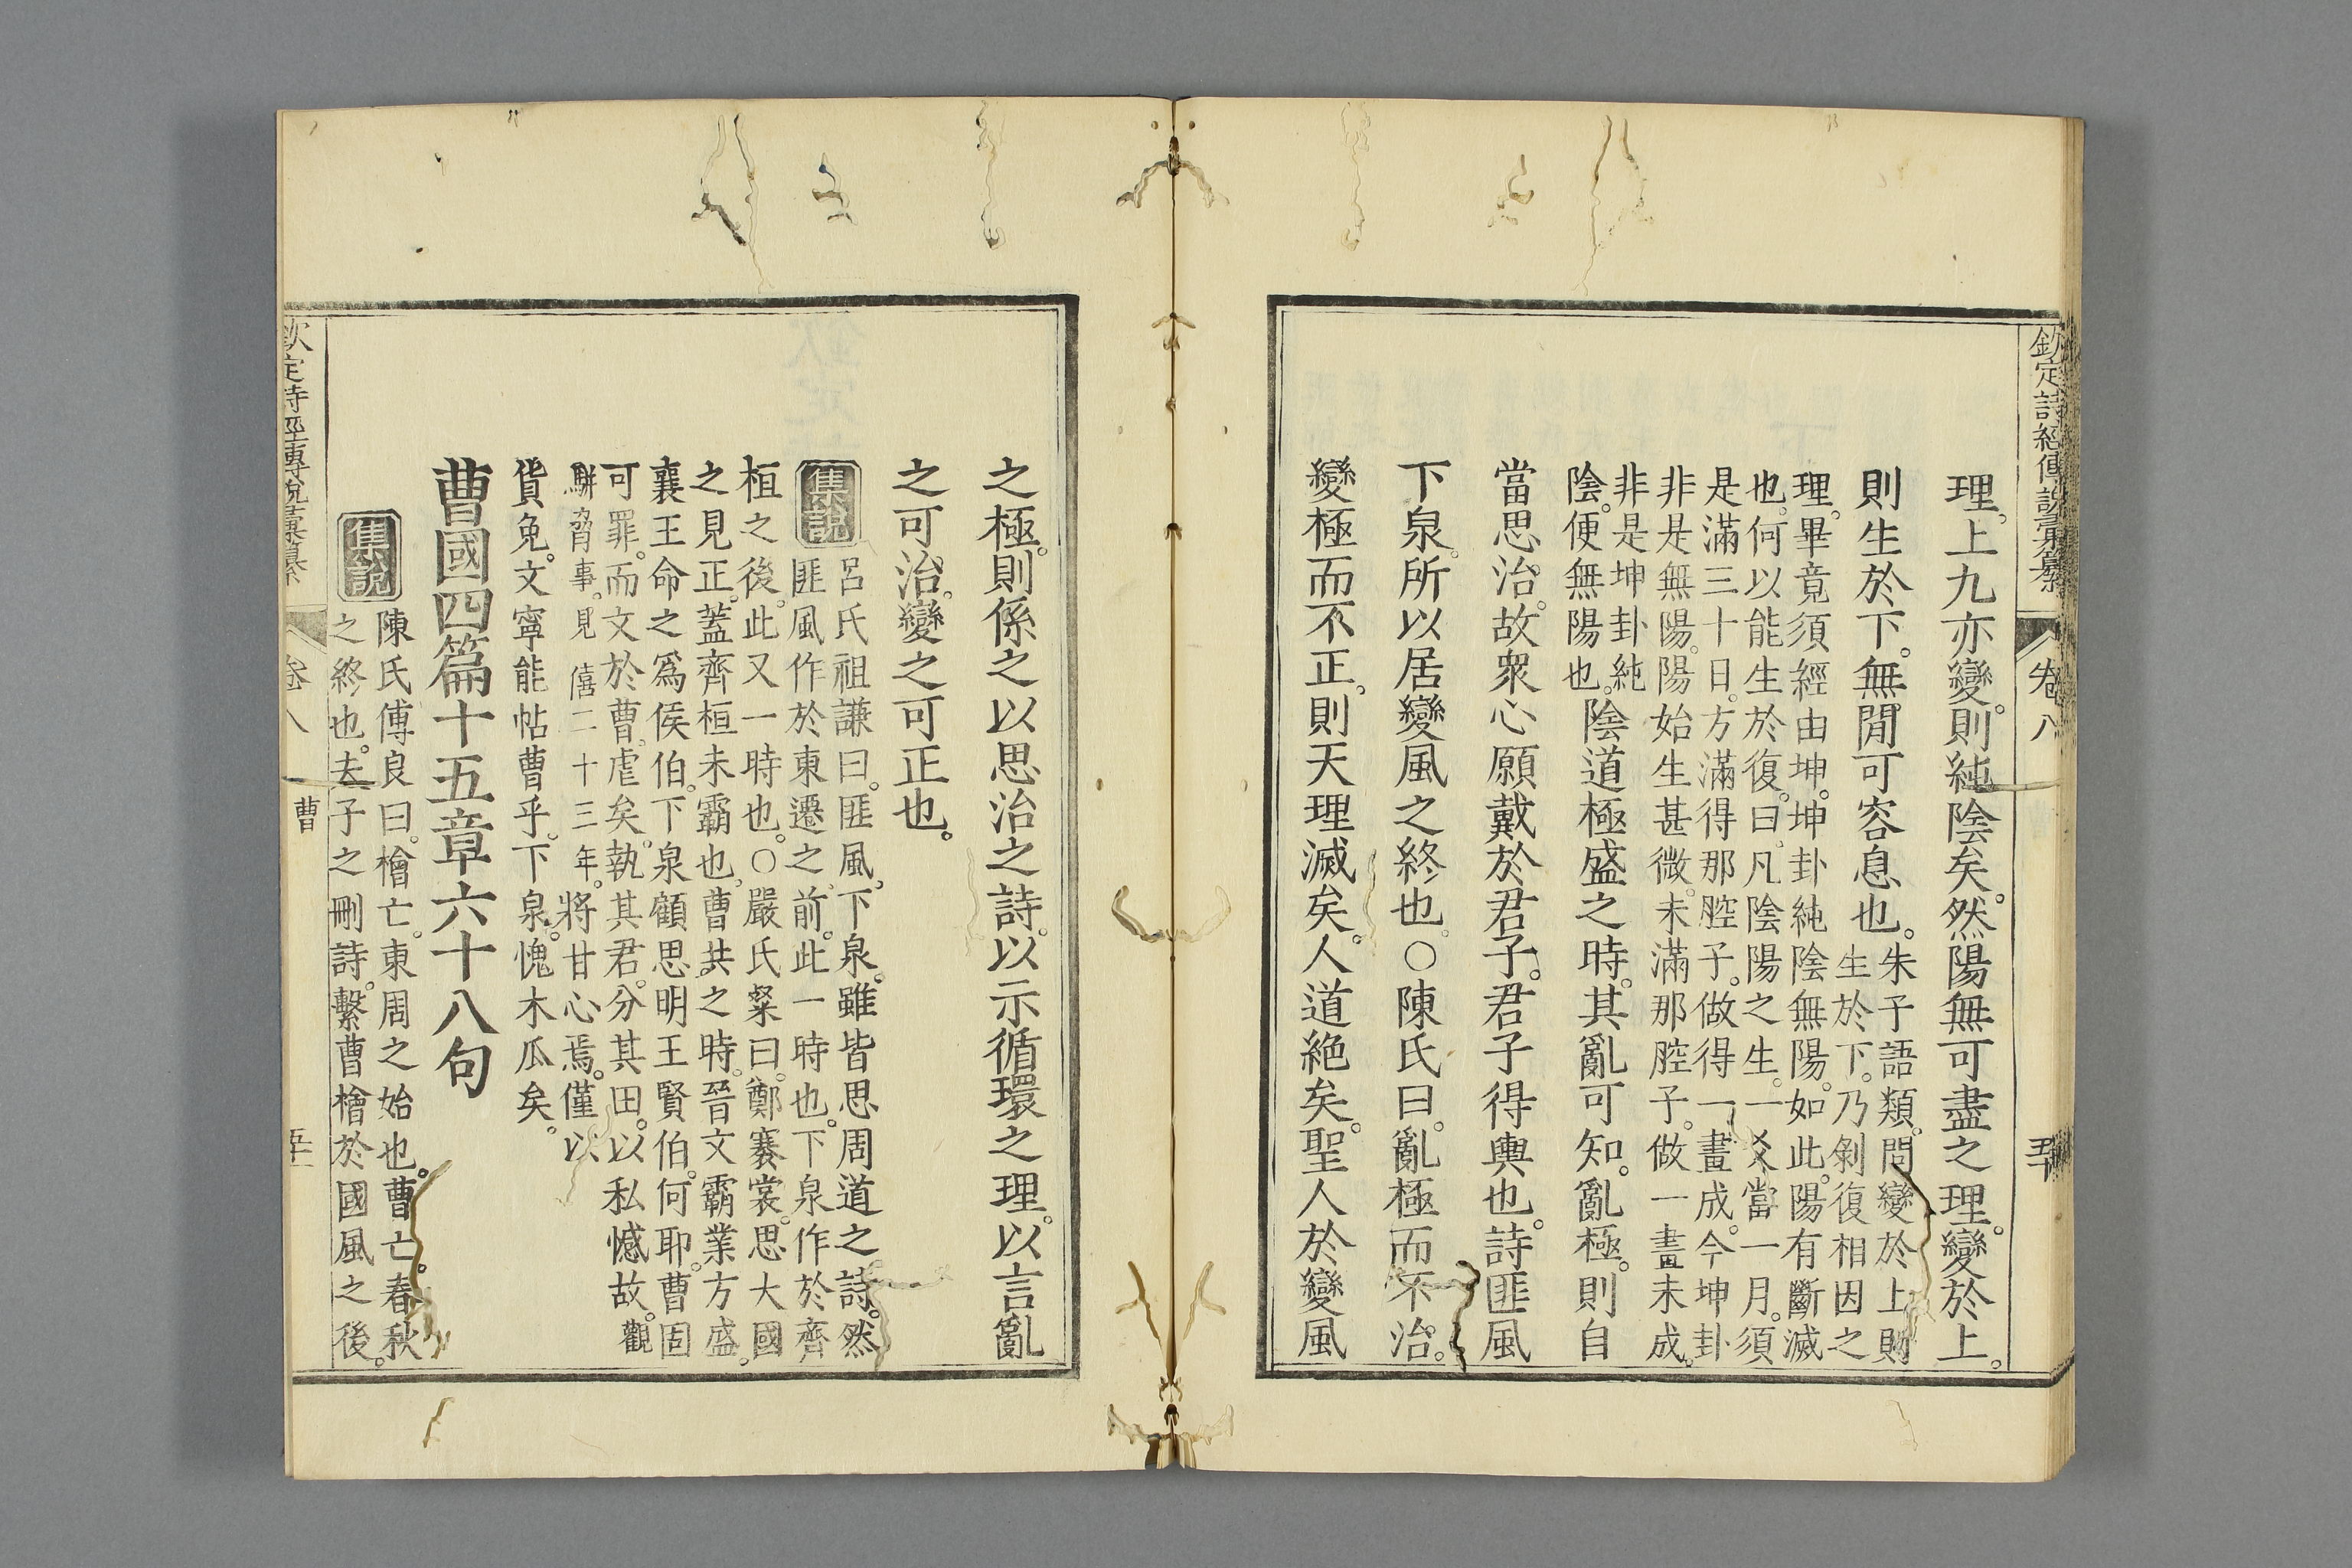 欽定詩經傳說彙纂 卷八 五十
理。上九亦變。則純陰矣。然陽無可盡之理。變於上。
則生於下。無閒可容息也。
朱子語類。問變於上。則
生於下。乃剝復相因之
理。畢竟須經由坤。坤卦純陰無陽。如此。陽有斷滅
也。何以能生於復。曰。凡陰陽之生。一爻當一月。須
是滿三十日。方滿得那腔子。做得一畫成。今坤卦
非是無陽。陽始生甚微。未滿那腔子。做一畫未成。
非是坤卦純
陰。便無陽也。
陰道極盛之時。其亂可知。亂極。則自
當思治。故衆心願戴於君子。君子得輿也。詩匪風
下泉。所以居變風之終也。○陳氏曰。亂極而不治。
變極而不正。則天理滅矣。人道絶矣。聖人於變風
之極。則係之以思治之詩。以示循環之理。以言亂
之可治。變之可正也。
集說
呂氏祖謙曰。匪風。下泉。雖皆思周道之詩。然
匪風作於東遷之前。此一時也。下泉作於齊
桓之後。此又一時也。○嚴氏粲曰。鄭褰裳。思大國
之見正。蓋齊桓未霸也。曹共之時。晉文霸業方盛。
襄王命之爲侯伯。下泉顧思明王賢伯。何耶。曹固
可罪。而文於曹。虐矣。執其君。分其田。以私憾故。觀
駢脅事。見僖二十三年。將甘心焉。僅以
貨免。文寧能帖曹乎。下泉。愧木瓜矣。
曹國四篇十五章六十八句
集說
陳氏傅良曰。檜亡。東周之始也。曹亡。春秋
之終也。夫子之刪詩。繫曹檜於國風之後。
欽定詩經傳說彙纂 卷八 曹